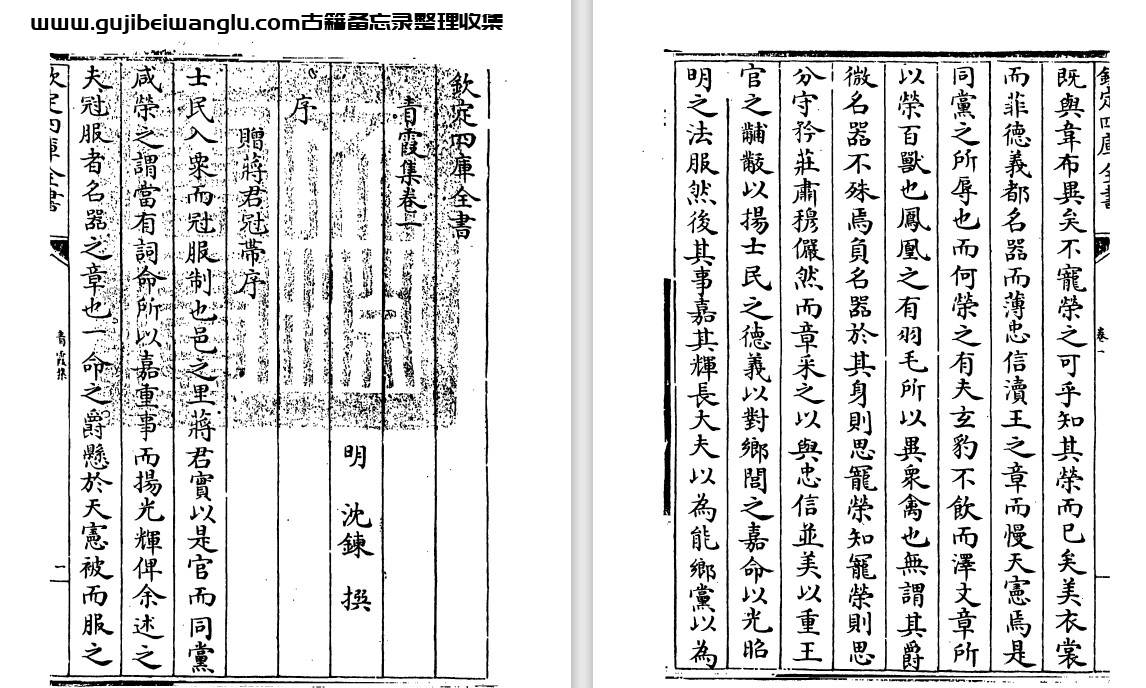 www.gujibeiwanglu.com古籍备忘录整理收集
欽定四庫全書
青霞集卷一
明 沈鍊 撰
序
贈蔣君冠帶序
士民入粟而冠服制也邑之里蔣君實以是官而同黨
咸榮之謂當有詞命所以嘉重事而揚光輝俾余述之
夫冠服者名器之章也一命之爵懸於天憲被而服之
欽定四庫全書
青霞集
一
欽定四庫全書
卷一
既與韋布異矣不寵榮之可乎知其榮而已矣美衣裳
而菲德義都名器而薄忠信瀆王之章而慢天憲焉是
同黨之所辱也而何榮之有夫玄豹不飲而澤文章所
以榮百獸也鳳凰之有羽毛所以異衆禽也無謂其爵
微名器不殊焉負名器於其身則思寵榮知寵榮則思
分守矜莊肅穆儼然而章采之以與忠信並美以重王
官之黼黻以揚士民之德義以對鄉閭之嘉命以光昭
明之法服然後其事嘉其輝長大夫以為能鄉黨以為